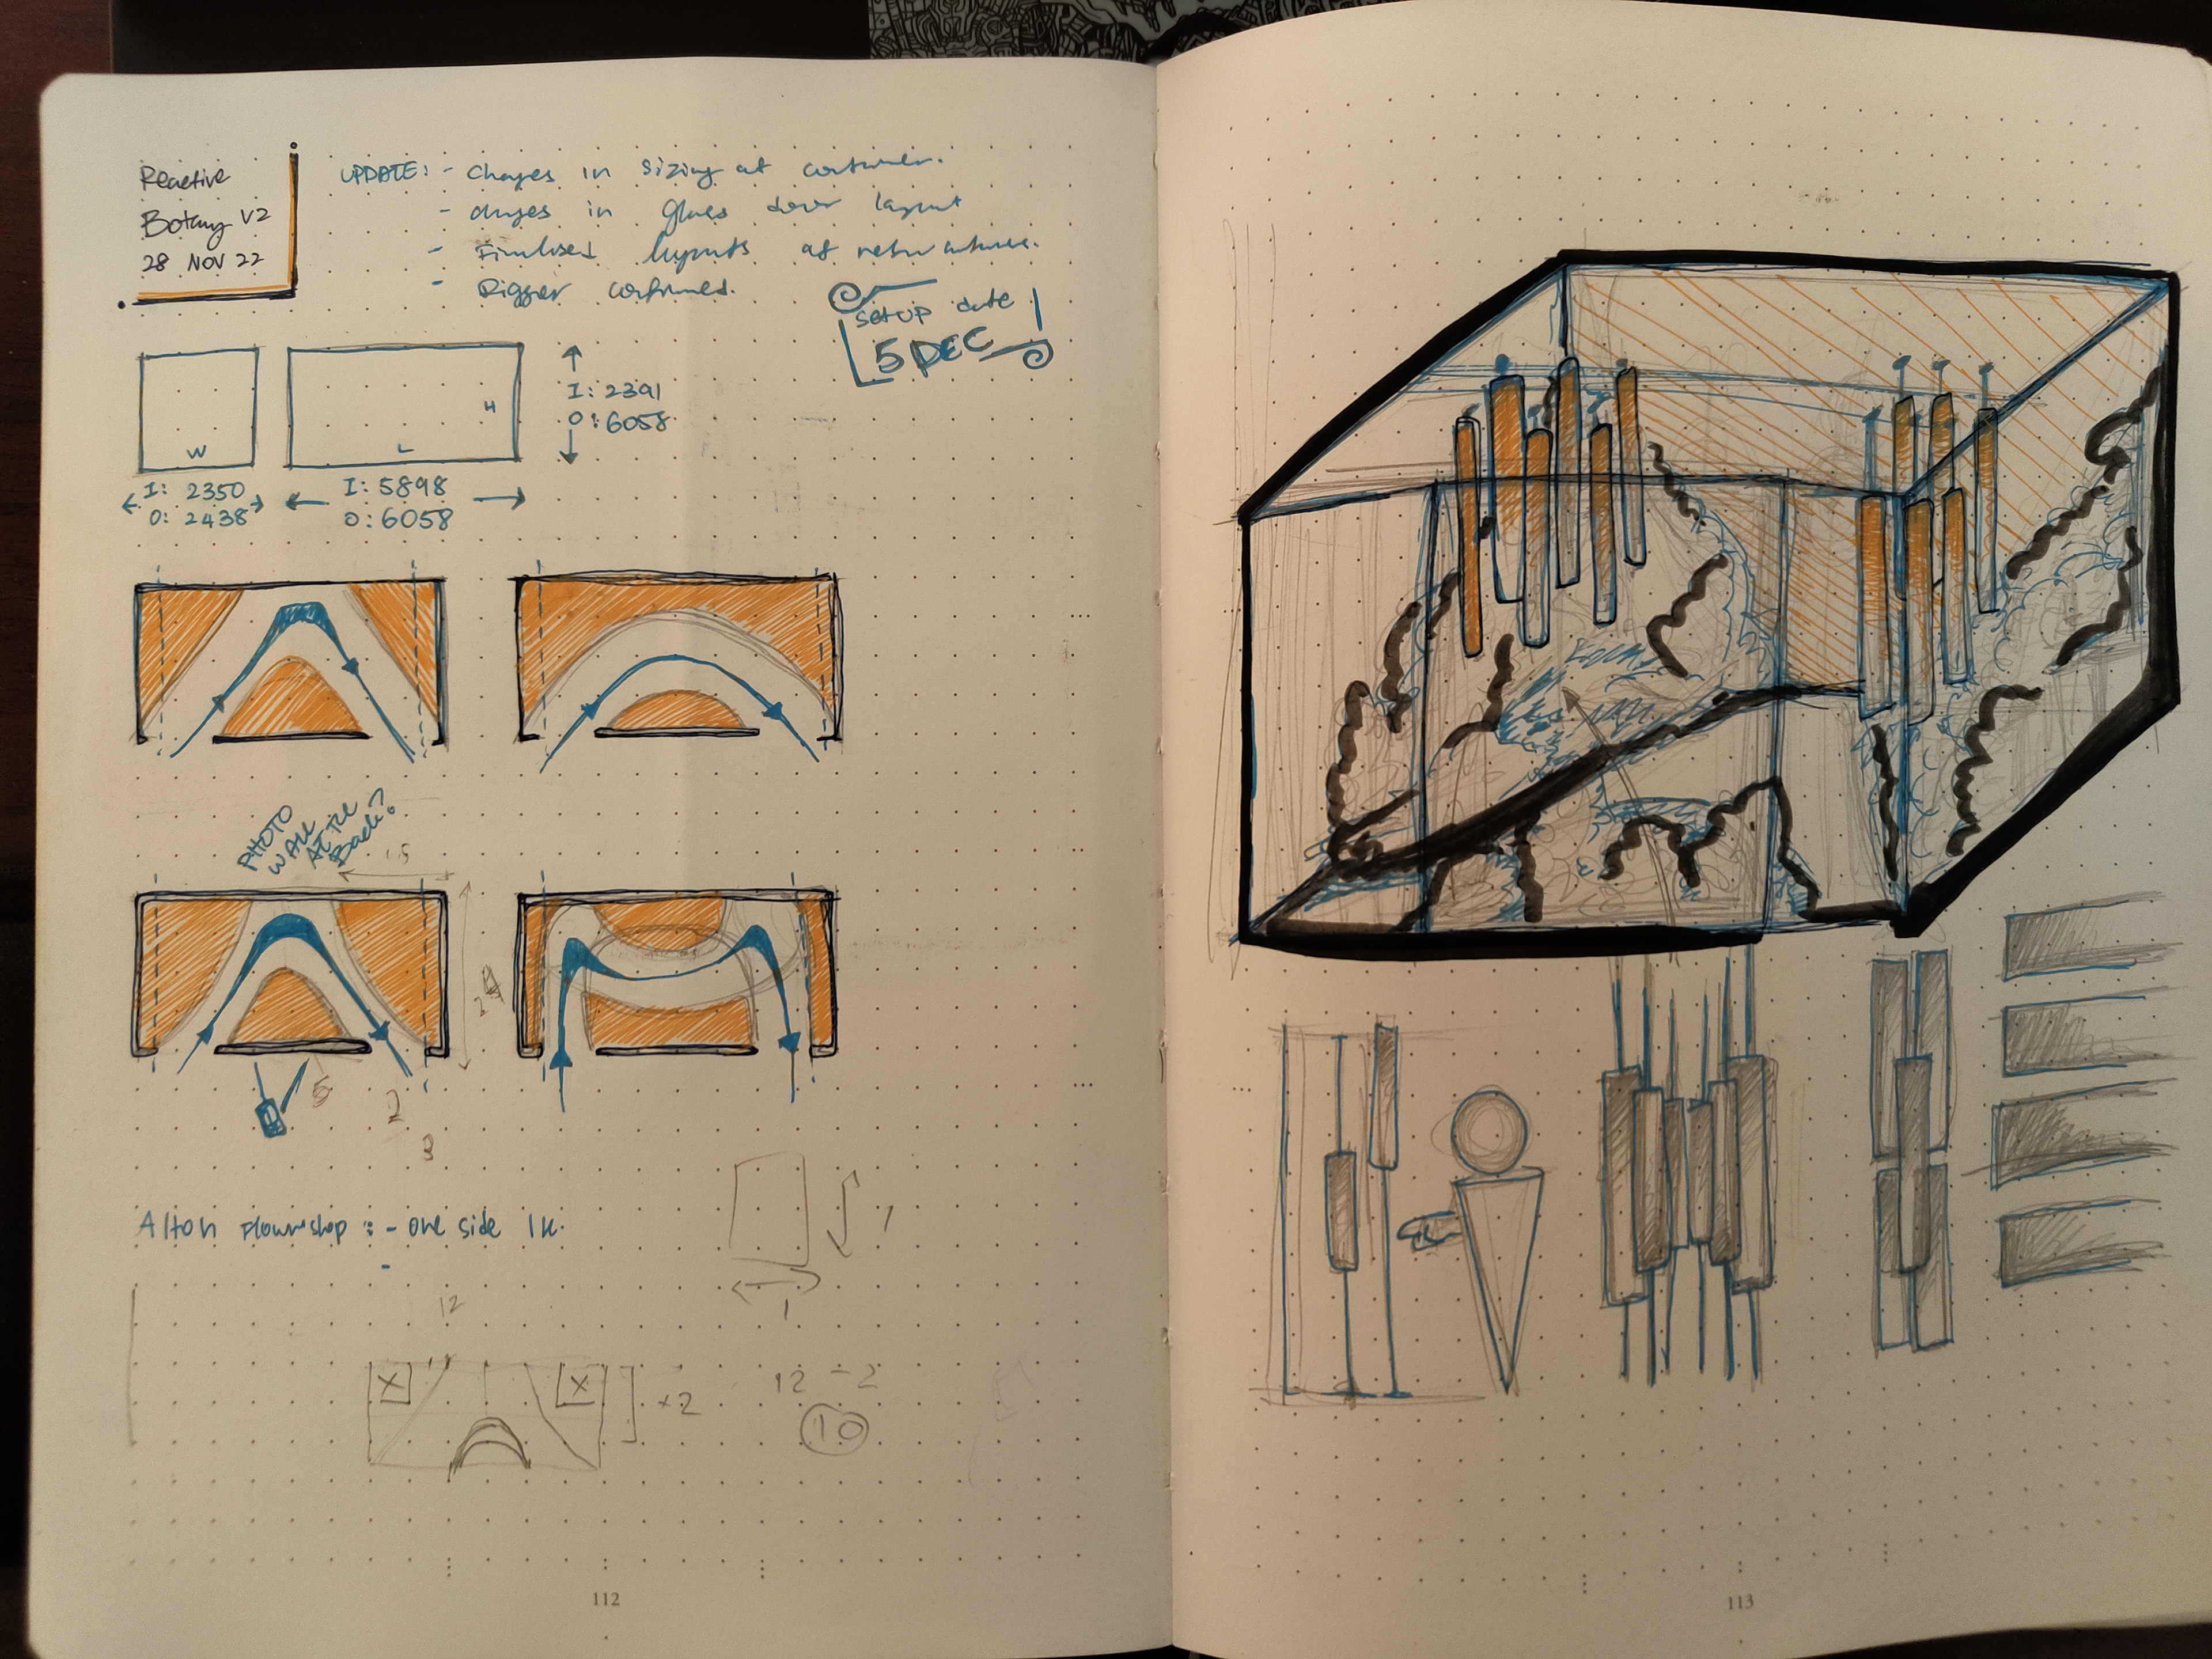 Reactive
Botany V2
28 NOV 22
UPDATE: - Changes in sizing of container.
- changes in glass door layout
- Finalised layouts of
- Rigger confirmed.
setup date
5 DEC
W
L
H
I: 2391
O: 6058
I: 2350
O: 2438
I: 5898
O: 6058
PHOTO
WALL
AT THE
Back?
1.5
5
2
3
Alton Flowershop : - one side 1k.
-
1
1
12
X
X
×2
12 - 2
10
112
113